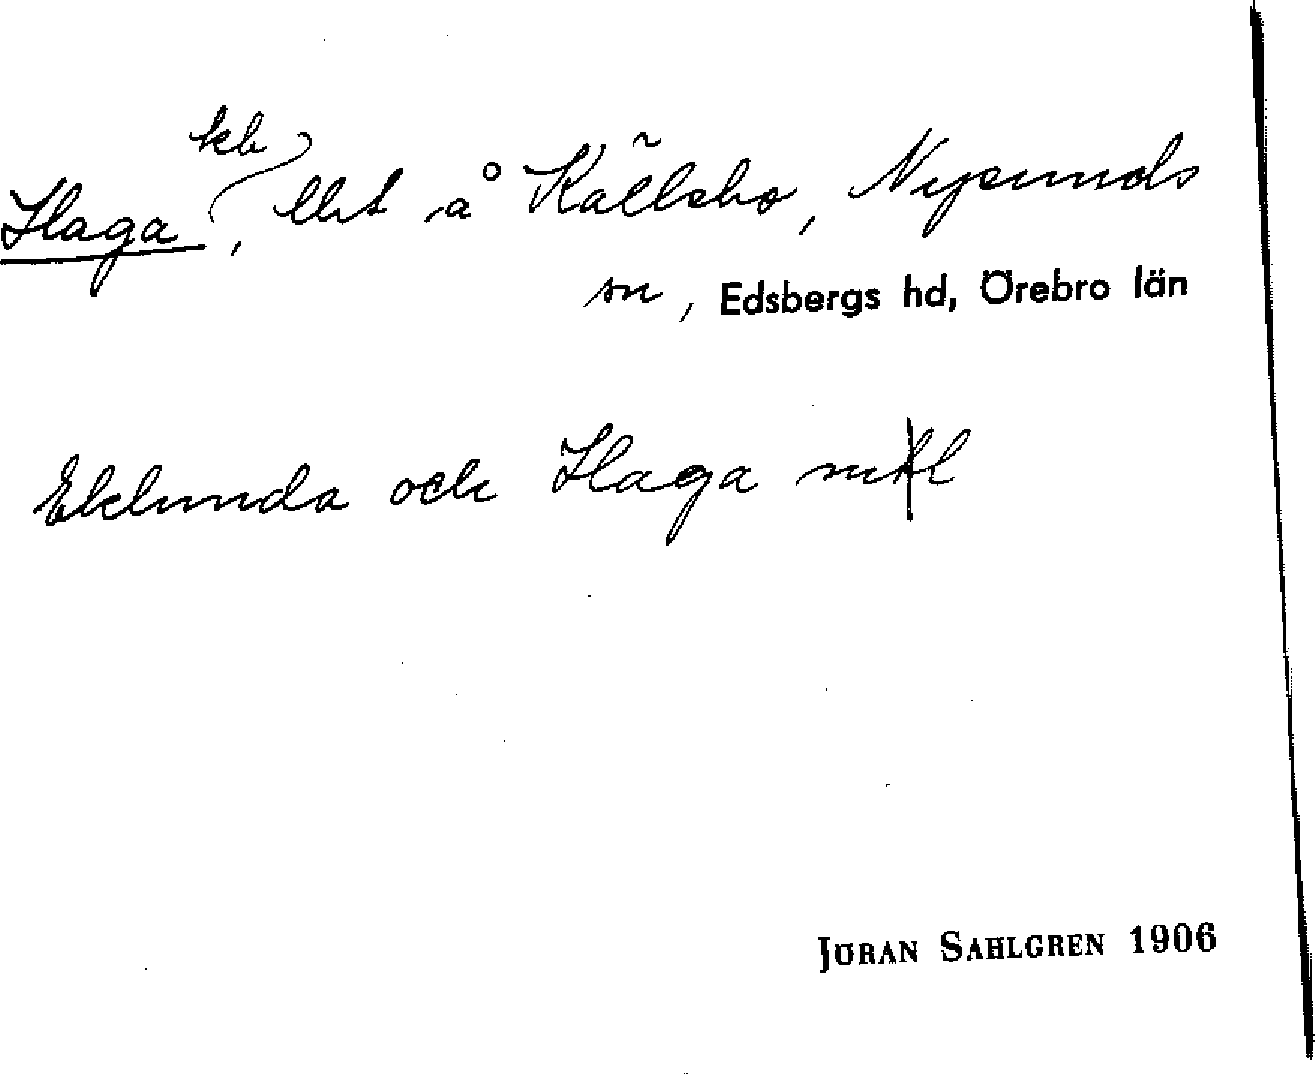 Haga kb, lht å Källsbo, Nysunds
sn, Edsbergs hd, Örebro län
Eklunda och Haga
JÖRAN SAHLGREN 1906